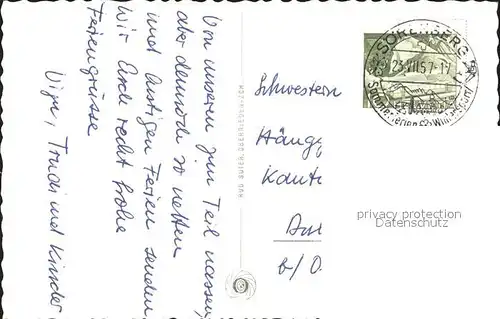 Von unseren zum Teil nassen,
aber dennoch so netten
und lustigen Ferien senden
wir Euch recht frohe
Feriengrüsse
Vige, Trudi und Kinder
Schwestern
Hängg
Kant
b/O
SÖRENBERG
23.VII.57-17
Sommerferien & Wintersport
privacy protection
Datenschutz